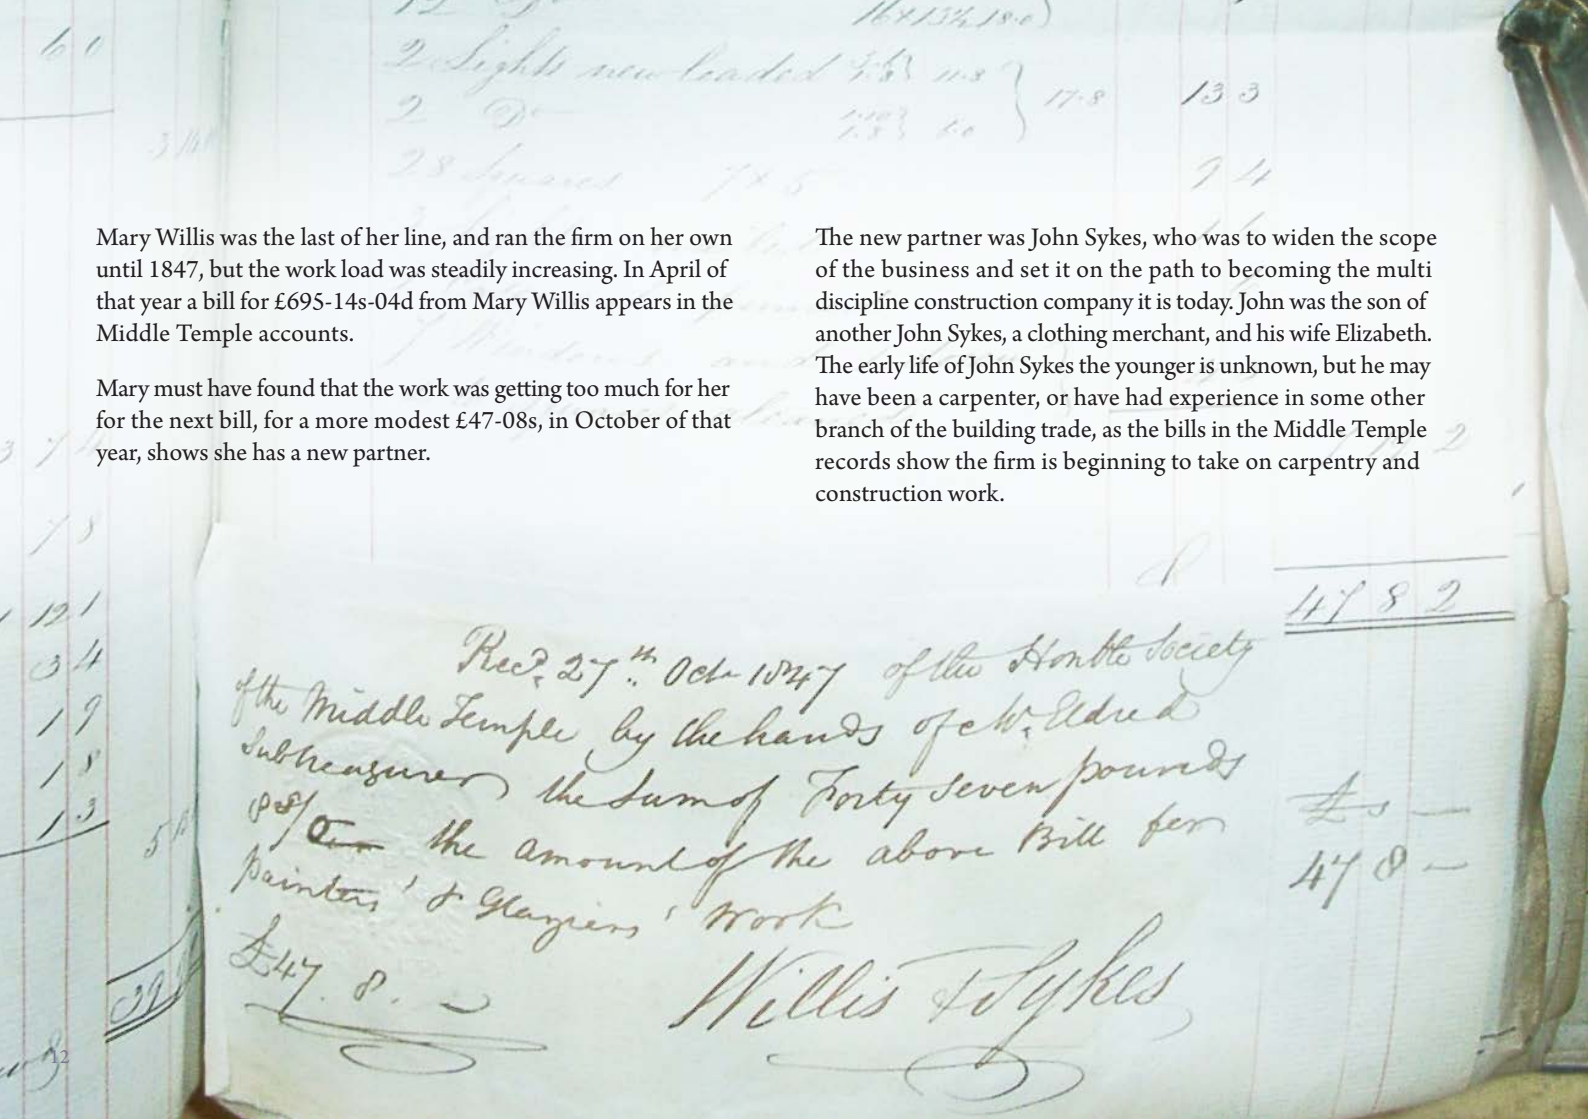 16 x 13½ 18.0)
60
2 Lights new leaded 11.8
17.8 13 3
2 Do
28 Squares 7 x 5
2 4
Mary Willis was the last of her line, and ran the firm on her own
until 1847, but the work load was steadily increasing. In April of
that year a bill for £695-14s-04d from Mary Willis appears in the
Middle Temple accounts.
Mary must have found that the work was getting too much for her
for the next bill, for a more modest £47-08s, in October of that
year, shows she has a new partner.
The new partner was John Sykes, who was to widen the scope
of the business and set it on the path to becoming the multi
discipline construction company it is today. John was the son of
another John Sykes, a clothing merchant, and his wife Elizabeth.
The early life of John Sykes the younger is unknown, but he may
have been a carpenter, or have had experience in some other
branch of the building trade, as the bills in the Middle Temple
records show the firm is beginning to take on carpentry and
construction work.
7 8
12 1
3 4
1 9
1 8
1 3
47 8 2
Recd. 27th Octr 1847 of the Honble Society
of the Middle Temple by the hands of Mr. Eldred
Subtreasurer the Sum of Forty Seven pounds
08/ the amount of the above Bill for
painters' & Glaziers' Work
£47. 8. –
Willis & Sykes
£ s –
47 8 –
12